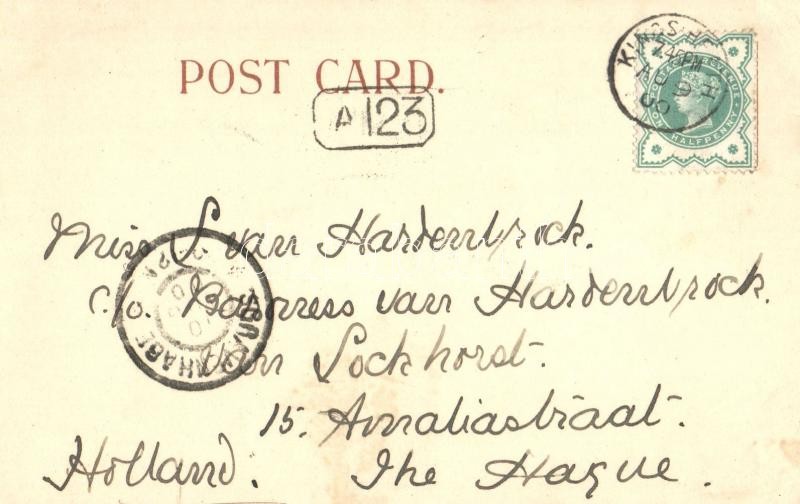 POST CARD.
A 123
HALFPENNY
Miss S van Hardenbrock.
c/o. Baroness van Hardenbrock.
von Lockhorst.
15. Amaliastraat.
Holland. The Hague.